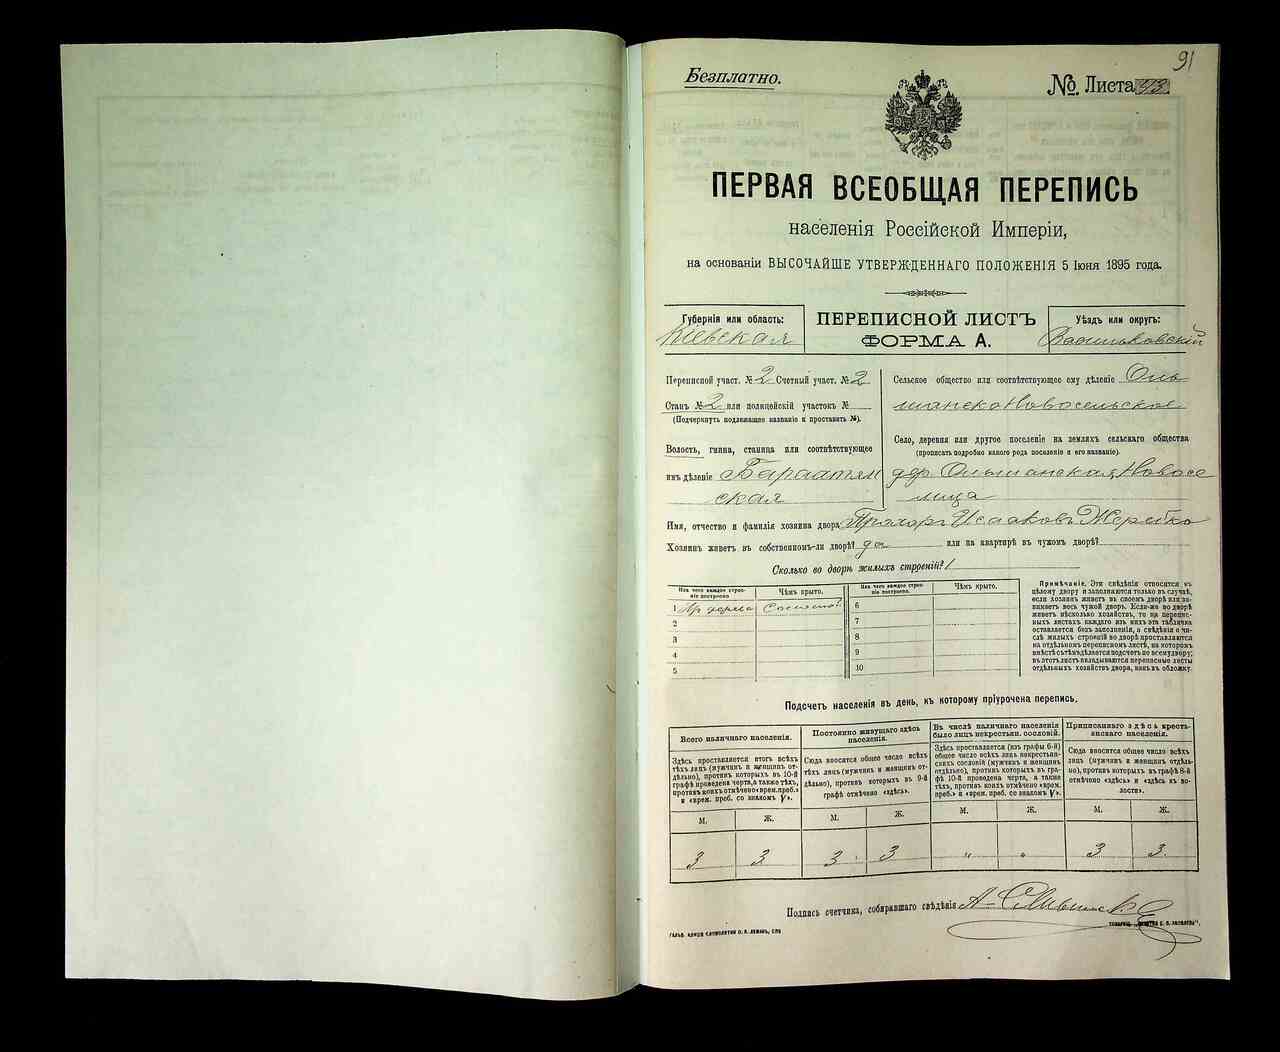 91
Безплатно.
№. Листа 93.
ПЕРВАЯ ВСЕОБЩАЯ ПЕРЕПИСЬ
населенія Россійской Имперіи,
на основаніи ВЫСОЧАЙШЕ УТВЕРЖДЕННАГО ПОЛОЖЕНІЯ 5 Іюня 1895 года.
Губернія или область:
Кіевская
ПЕРЕПИСНОЙ ЛИСТЪ
ФОРМА А.
Уѣздъ или округъ:
Васильковскій
Переписной участ. № 2 Счетный участ. № 2
Станъ № 2 или полицейскій участокъ №
(Подчеркнуть подлежащее названіе и проставить №).
Волость, гмина, станица или соотвѣтствующее
имъ дѣленіе
ская
Сельское общество или соотвѣтствующее ему дѣленіе Оль
шанско Новосельское
Село, деревня или другое поселеніе на земляхъ сельскаго общества
(прописать подробно какого рода поселеніе и его названіе).
дер. Ольшанская Новосе
лица
Имя, отчество и фамилія хозяина двора Прохоръ Исааковъ
Хозяинъ живетъ въ собственномъ-ли дворѣ? да или на квартирѣ въ чужомъ дворѣ?
Сколько во дворѣ жилыхъ строеній? 1
Изъ чего каждое строе-
ніе построено.
Чѣмъ крыто.
Изъ чего каждое строе-
ніе построено.
Чѣмъ крыто.
1 Изъ дерева Соломою 6
2 7
3 8
4 9
5 10
Примѣчаніе. Эти свѣдѣнія относятся къ
цѣлому двору и заполняются только въ случаѣ,
если хозяинъ живетъ въ своемъ дворѣ или за-
нимаетъ весь чужой дворъ. Если-же во дворѣ
живетъ нѣсколько хозяйствъ, то на перепис-
ныхъ листахъ каждаго изъ нихъ эта табличка
оставляется безъ заполненія, а свѣдѣнія о чи-
слѣ жилыхъ строеній во дворѣ проставляются
на отдѣльномъ переписномъ листѣ, на которомъ
вмѣстѣ съ тѣмъ дѣлается подсчетъ по всему двору;
въ этотъ листъ вкладываются переписные листы
отдѣльныхъ хозяйствъ двора, какъ въ обложку.
Подсчетъ населенія въ день, къ которому пріурочена перепись.
Всего наличнаго населенія.
Здѣсь проставляется итогъ всѣхъ
тѣхъ лицъ (мужчинъ и женщинъ от-
дѣльно), противъ которыхъ въ 10-й
графѣ проведена черта, а также тѣхъ,
противъ коихъ отмѣчено «врем. преб.»
и «врем. преб. со знакомъ V».
Постоянно живущаго здѣсь
населенія.
Сюда вносится общее число всѣхъ
тѣхъ лицъ (мужчинъ и женщинъ от-
дѣльно), противъ которыхъ въ 9-й
графѣ отмѣчено «здѣсь».
Въ числѣ наличнаго населенія
было лицъ некрестьян. сословій.
Здѣсь проставляется (изъ графы 6-й)
общее число всѣхъ лицъ некрестьян-
скихъ сословій (мужчинъ и женщинъ
отдѣльно), противъ которыхъ въ гра-
фѣ 10-й проведена черта, а также
тѣхъ, противъ коихъ отмѣчено «врем.
преб.» и «врем. преб. со знакомъ V».
Приписаннаго здѣсь кресть-
янскаго населенія.
Сюда вносится общее число всѣхъ
лицъ (мужчинъ и женщинъ отдѣль-
но), противъ которыхъ въ графѣ 8-й
отмѣчено «здѣсь» и «здѣсь въ во-
лости».
М. Ж. М. Ж. М. Ж. М. Ж.
3 3 3 3 " " 3 3
Подпись счетчика, собиравшаго свѣдѣнія